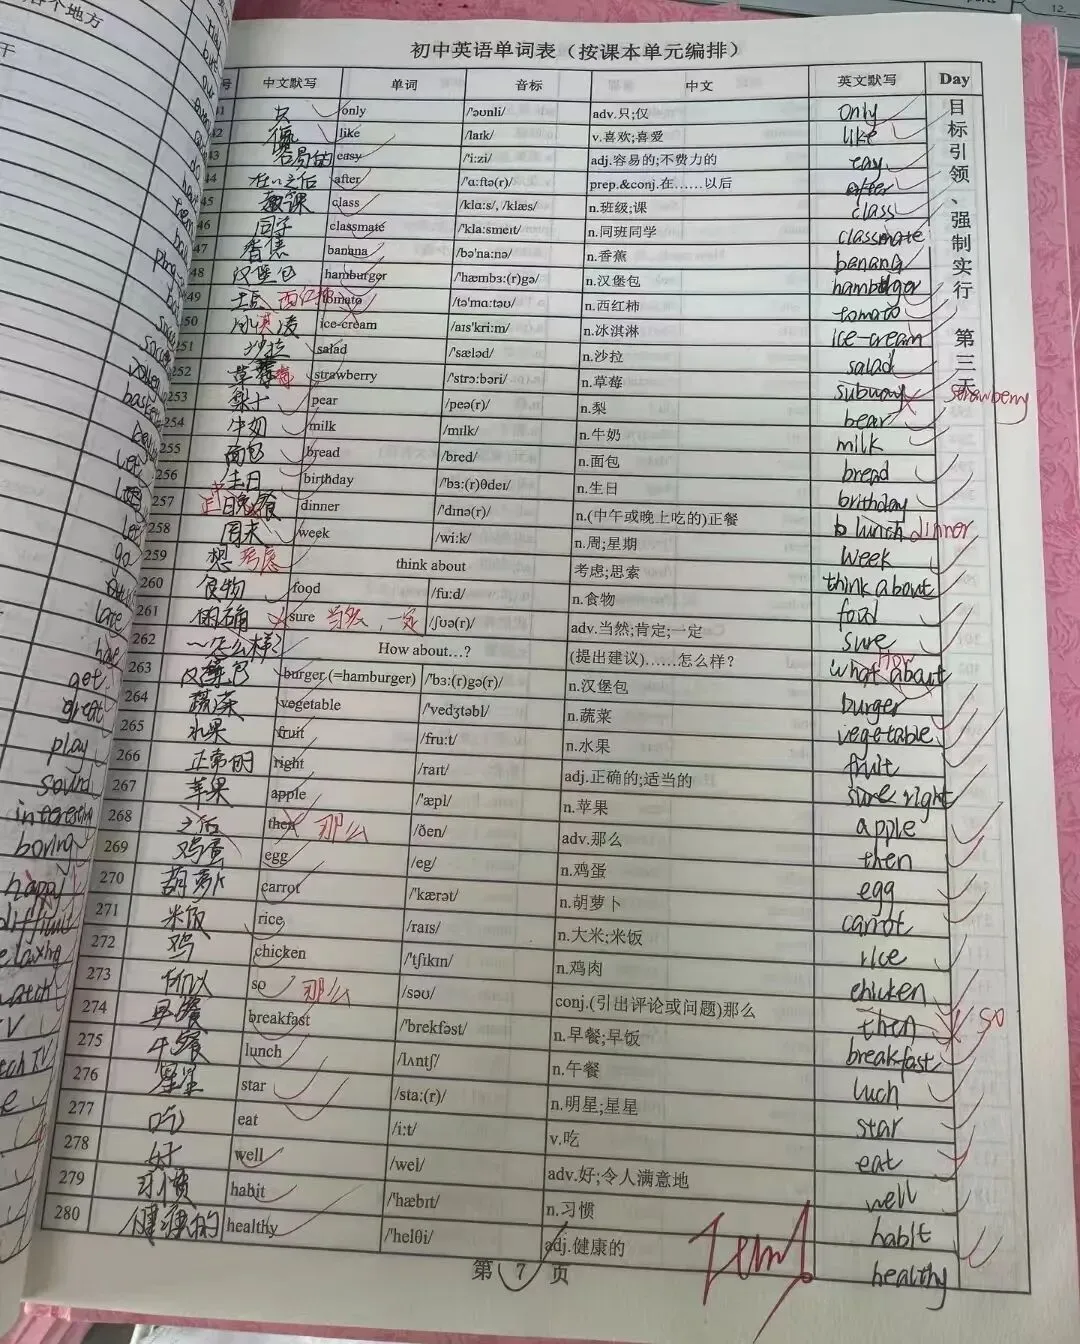 个地方
干
初中英语单词表（按课本单元编排）
号 中文默写 单词 音标 中文 英文默写 Day
41 只 only /'əʊnli/ adv.只;仅 only
42 like /laɪk/ v.喜欢;喜爱 like
43 容易的 easy /'i:zi/ adj.容易的;不费力的 easy
44 在以之后 after /'ɑ:ftə(r)/ prep.&conj.在……以后 after
45 class /klɑ:s/, /klæs/ n.班级;课 class
46 同学 classmate /'klɑ:smeɪt/ n.同班同学 classmate
47 香蕉 banana /bə'nɑ:nə/ n.香蕉 banana
48 汉堡包 hamburger /'hæmbɜ:(r)gə/ n.汉堡包 hamburger
49 土豆 西红柿 tomato /tə'mɑ:təʊ/ n.西红柿 tomato
50 冰淇凌 ice-cream /aɪs'kri:m/ n.冰淇淋 ice-cream
251 沙拉 salad /'sæləd/ n.沙拉 salad
252 草莓 strawberry /'strɔ:bəri/ n.草莓 subway strawberry
253 梨子 pear /peə(r)/ n.梨 bear
254 牛奶 milk /mɪlk/ n.牛奶 milk
255 面包 bread /bred/ n.面包 bread
256 生日 birthday /'bɜ:(r)θdeɪ/ n.生日 brithday
257 正 晚餐 dinner /'dɪnə(r)/ n.(中午或晚上吃的)正餐 lunch dinner
258 周末 week /wi:k/ n.周;星期 week
259 想 考虑 think about 考虑;思索 think about
260 食物 food /fu:d/ n.食物 food
261 的确 sure 当然，一定 /ʃʊə(r)/ adv.当然;肯定;一定 sure
262 ~怎么样? How about…? (提出建议)……怎么样? what about How
263 汉堡包 burger (=hamburger) /'bɜ:(r)gə(r)/ n.汉堡包 burger
264 蔬菜 vegetable /'vedʒtəbl/ n.蔬菜 vegetable
265 水果 fruit /fru:t/ n.水果 fruit
266 正常的 right /raɪt/ adj.正确的;适当的 sure right
267 苹果 apple /'æpl/ n.苹果 apple
268 之后 then 那么 /ðen/ adv.那么 then
269 鸡蛋 egg /eg/ n.鸡蛋 egg
270 葫萝卜 carrot /'kærət/ n.胡萝卜 carrot
271 米饭 rice /raɪs/ n.大米;米饭 rice
272 鸡 chicken /'tʃɪkɪn/ n.鸡肉 chicken
273 所以 so 那么 /səʊ/ conj.(引出评论或问题)那么 then so
274 早餐 breakfast /'brekfəst/ n.早餐;早饭 breakfast
275 午餐 lunch /lʌntʃ/ n.午餐 luch
276 星星 star /stɑ:(r)/ n.明星;星星 star
277 吃 eat /i:t/ v.吃 eat
278 好 well /wel/ adv.好;令人满意地 well
279 习惯 habit /'hæbɪt/ n.习惯 habit
280 健康的 healthy /'helθi/ adj.健康的 healthy
目标引领、强制实行 第三天
第 7 页
late
get
great
play
sound
interesting
boring
happy
TV